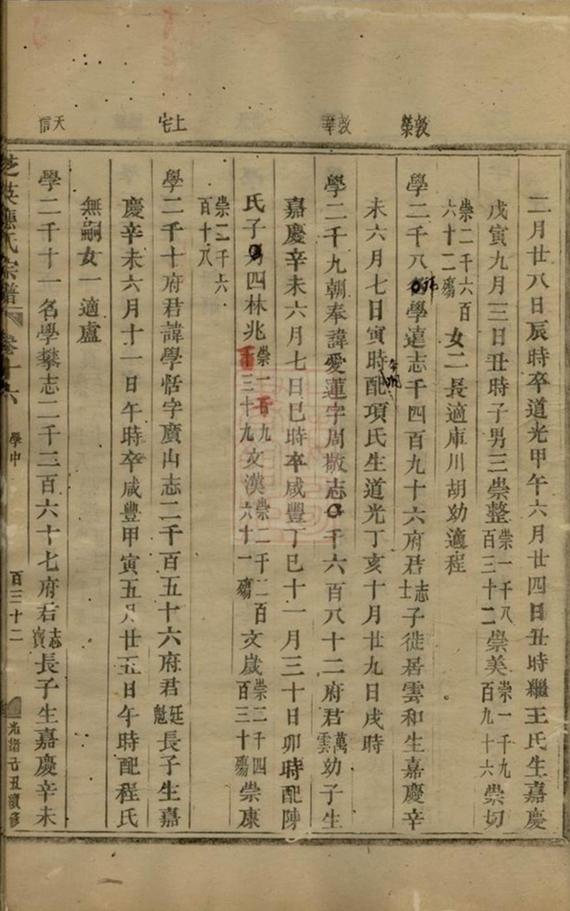 敦榮
敦華
上宅
天信
二月廿八日辰時卒道光甲午六月廿四日丑時繼王氏生嘉慶
戊寅九月三日丑時子男三崇整崇一千八百三十二崇美崇一千九百九十六崇切
崇二千六百六十二殤女二長適庫川胡幼適程
學二千八學遠志千四百九十六府君志士子徙居雲和生嘉慶辛
未六月七日寅時配項氏生道光丁亥十月廿九日戌時
學二千九朝奉諱愛蓮字周敬志千六百八十二府君萬雲幼子生
嘉慶辛未六月七日巳時卒咸豐丁巳十一月三十日卯時配陳
氏子男四林兆崇二百九十三十九文漢崇二千二百六十一殤文歲崇二千四百三十殤崇康
崇二千六百十八
學二千十府君諱學恬字廣山志二千百五十六府君廷魁長子生嘉
慶辛未六月十一日午時卒咸豐甲寅五月廿五日午時配程氏
無嗣女一適盧
學二千十一名學攀志二千三百六十七府君志寶長子生嘉慶辛未
芝英應氏宗譜 卷十六 學中 百三十二 光緒己丑續修